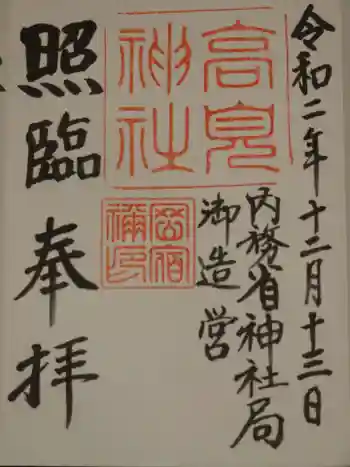 令和二年十二月十三日
内務省神社局
御造営
高見神社
照臨奉拝